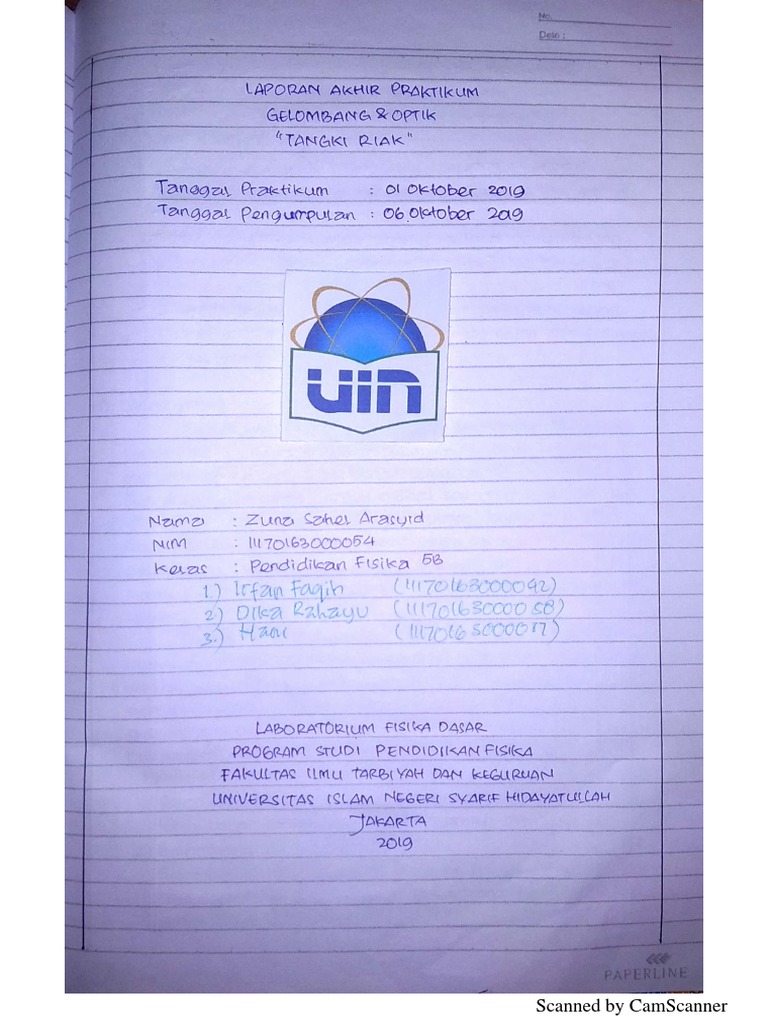 No.
Date :
LAPORAN AKHIR PRAKTIKUM
GELOMBANG & OPTIK
"TANGKI RIAK"
Tanggal Praktikum : 01 Oktober 2019
Tanggal Pengumpulan : 06 Oktober 2019
UIN
Nama : Zuna Sahel Arasyid
NIM : 11170163000054
Kelas : Pendidikan Fisika 5B
1.) Irfan Faqih (11170163000042)
2) Dika Rahayu (11170163000058)
3.)
LABORATORIUM FISIKA DASAR
PROGRAM STUDI PENDIDIKAN FISIKA
FAKULTAS ILMU TARBIYAH DAN KEGURUAN
UNIVERSITAS ISLAM NEGERI SYARIF HIDAYATULLAH
JAKARTA
2019
PAPERLINE
Scanned by CamScanner